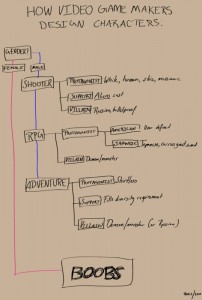 HOW VIDEO GAME MAKERS
DESIGN CHARACTERS.
GENDER
FEMALE MALE
SHOOTER
PROTAGONIST White, human,
SUPPORT Aliens cast
VILLAIN Russian,
RPG
PROTAGONIST
AMERICAN
JAPANESE Japanese,
VILLAIN Demon/monster
ADVENTURE
PROTAGONIST Shirtless
SUPPORT Fills diversity requirement
VILLAIN Demon/monster (or Russian)
BOOBS